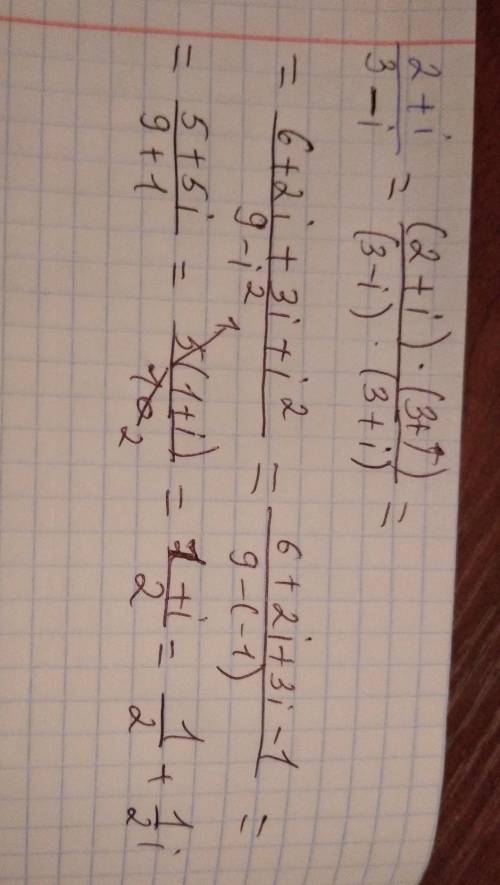 (2+i)/(3-i) = ((2+i)·(3+i))/((3-i)·(3+i)) =
= (6+2i+3i+i²)/(9-i²) = (6+2i+3i-1)/(9-(-1)) =
= (5+5i)/(9+1) = (5(1+i))/10 1 2 = (1+i)/2 = 1/2 + 1/2 i